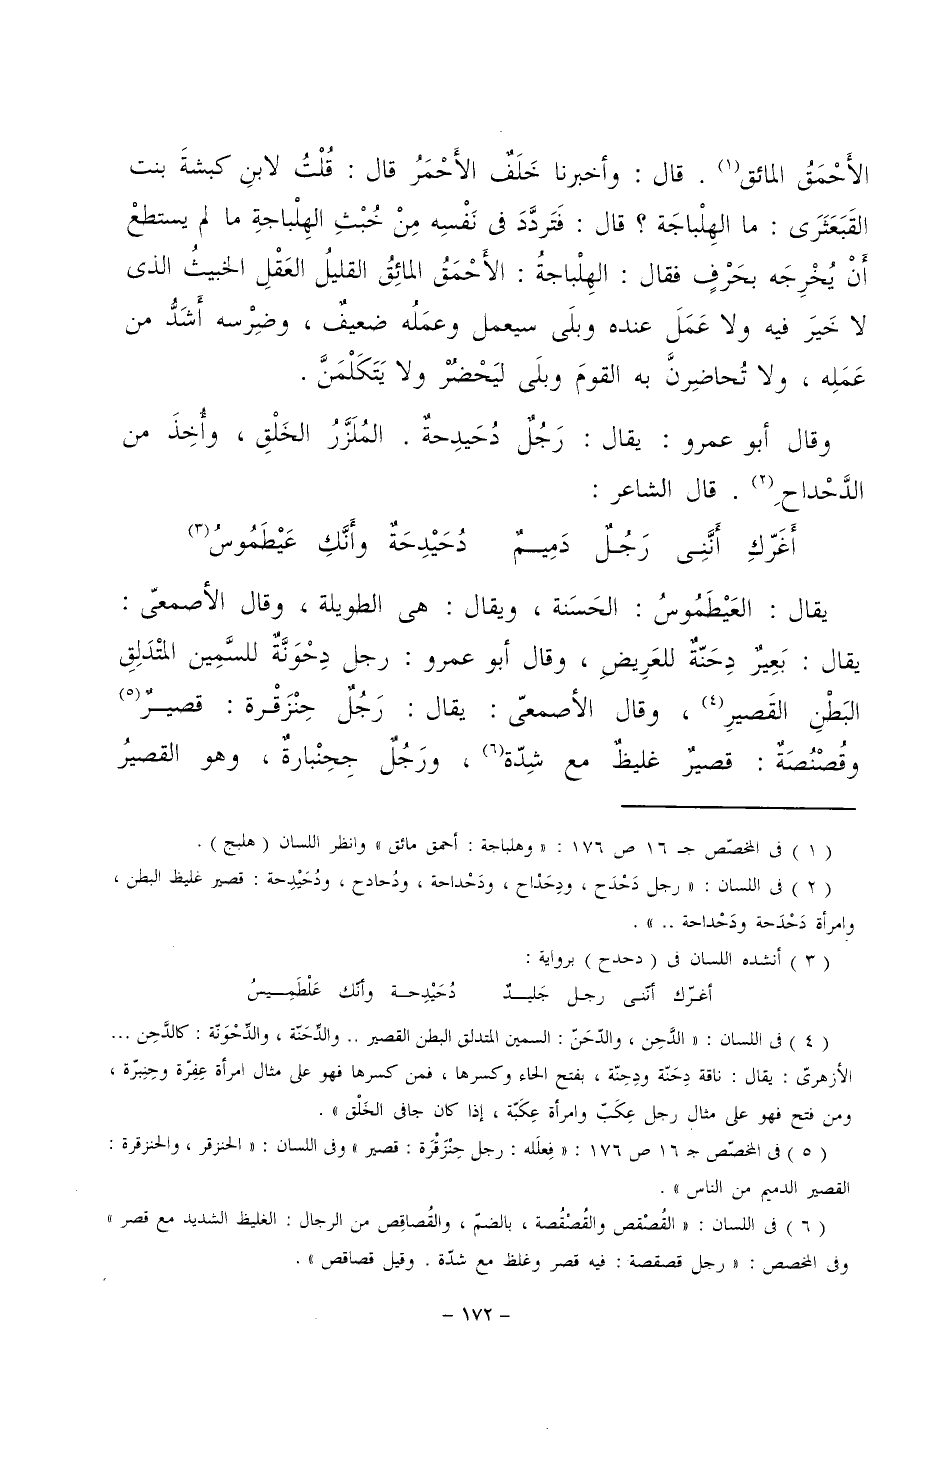 الأَحْمَقُ المائق(١) . قال : وأخبرنا خَلَفٌ الأَحْمَرُ قال : قُلْتُ لابنِ كبشةَ بنت
القَبَعْثَرَى : ما الهِلْباجَة ؟ قال : فَتَردَّدَ فى نَفْسِه مِنْ خُبْثِ الهِلْباجةِ ما لم يستطعْ
أَنْ يُخْرِجَه بحَرْفٍ فقال : الهِلْباجةُ : الأَحْمَقُ المائِقُ القليلُ العَقْلِ الخبيثُ الذى
لا خَيرَ فيه ولا عَمَلَ عنده وبلى سيعمل وعمَلُه ضعيفٌ ، وضِرْسه أَشَدُّ من
عَمَلِه ، ولا تُحاضِرنَّ به القومَ وبلَى ليَحْضُرْ ولا يَتَكَلْمَنَّ .
وقال أبو عمرو : يقال : رَجُلٌ دُحَيدِحةٌ . المُلَزَّزُ الخَلْقِ ، وأُخِذَ من
الدَّحْداحِ(٢) . قال الشاعر :
أَغَرّكِ أَنَّنِى رَجُلٌ دَمِيمٌ دُحَيْدِحَةٌ وأَنَّكِ عَيْطَمُوسُ(٣)
يقال : العَيْطَمُوسُ : الحَسَنة ، ويقال : هى الطويلة ، وقال الأصمعىّ :
يقال : بَعِيرٌ دِحَنّةٌ للعَريضِ ، وقال أبو عمرو : رجل دِحْوَنَّةٌ للسَّمِين المتْدَلِقِ
البَطْنِ القَصيرِ(٤) ، وقال الأصمعىّ : يقال : رَجُلٌ حِنْزَقْرة : قصيرٌ(٥)
وقُصْنُصَةٌ : قصيرٌ غليظٌ مع شِدّة(٦) ، ورَجُلٌ جِحِنْبارةٌ ، وهو القصيرُ
( ١ ) فى المخصّص جـ ١٦ ص ١٧٦ : « وهلباجة : أحمق مائق » وانظر اللسان ( هلبج ) .
( ٢ ) فى اللسان : « رجل دَحْدَح ، ودِحْدَاح ، ودَحْداحة ، ودُحادح ، ودُحَيْدِحة : قصير غليظ البطن ،
وامرأة دَحْدَحة ودَحْداحة .. » .
( ٣ ) أنشده اللسان فى ( دحدح ) برواية :
أغرّك أنّنى رجل جَليدٌ دُحَيْدِحة وأنّك عَلْطَمِيسُ
( ٤ ) فى اللسان : « الدَّحِن ، والدّحَنّ : السمين المتدلق البطن القصير .. والدِّحَنّة ، والدِّحْوَنّة : كالدَّحِن ...
الأزهرىّ : يقال : ناقة دِحَنّة ودِحِنّة ، بفتح الحاء وكسرها ، فمن كسرها فهو على مثال امرأة عِفِرّة وحِنِبرّة ،
ومن فتح فهو على مثال رجل عِكَبّ وامرأة عِكَبّة ، إذا كان جافى الخَلْق » .
( ٥ ) فى المخصّص جـ ١٦ ص ١٧٦ : « فِعلَله : رجل حِنْزَقْرَة : قصير » وفى اللسان : « الحنزقر ، والحنزقرة :
القصير الدميم من الناس » .
( ٦ ) فى اللسان : « القُصْقص والقُصْقُصة ، بالضمّ ، والقُصاقِص من الرجال : الغليظ الشديد مع قصر »
وفى المخصص : « رجل قصقصة : فيه قصر وغلظ مع شدّة . وقيل قصاقص » .
- ١٧٢ -